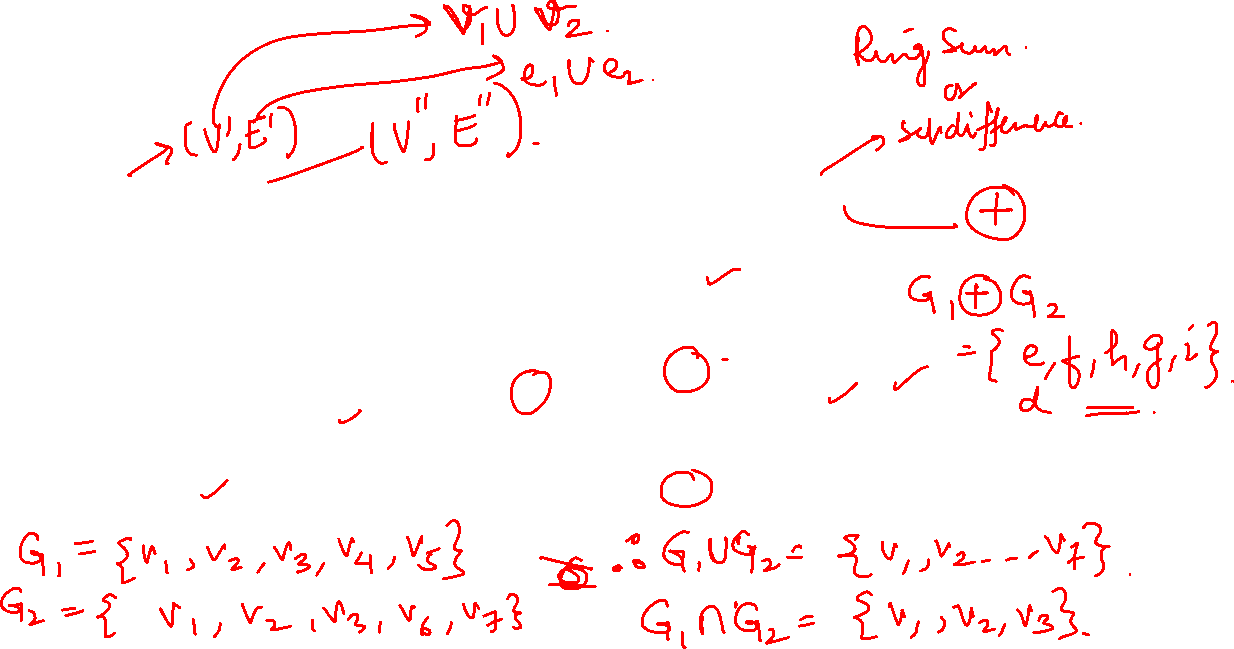 V₁ ∪ V₂.
e₁ ∪ e₂.
(V', E')
(V'', E'').
Ring Sum.
or
set difference.
⊕
G₁ ⊕ G₂
= { e, f, h, g, i}.
d
G₁ = {v₁, v₂, v₃, v₄, v₅}
G₂ = { v₁, v₂, v₃, v₆, v₇}
∴ G₁ ∪ G₂ = {v₁, v₂ - - , v₇}.
G₁ ∩ G₂ = {v₁, v₂, v₃}.